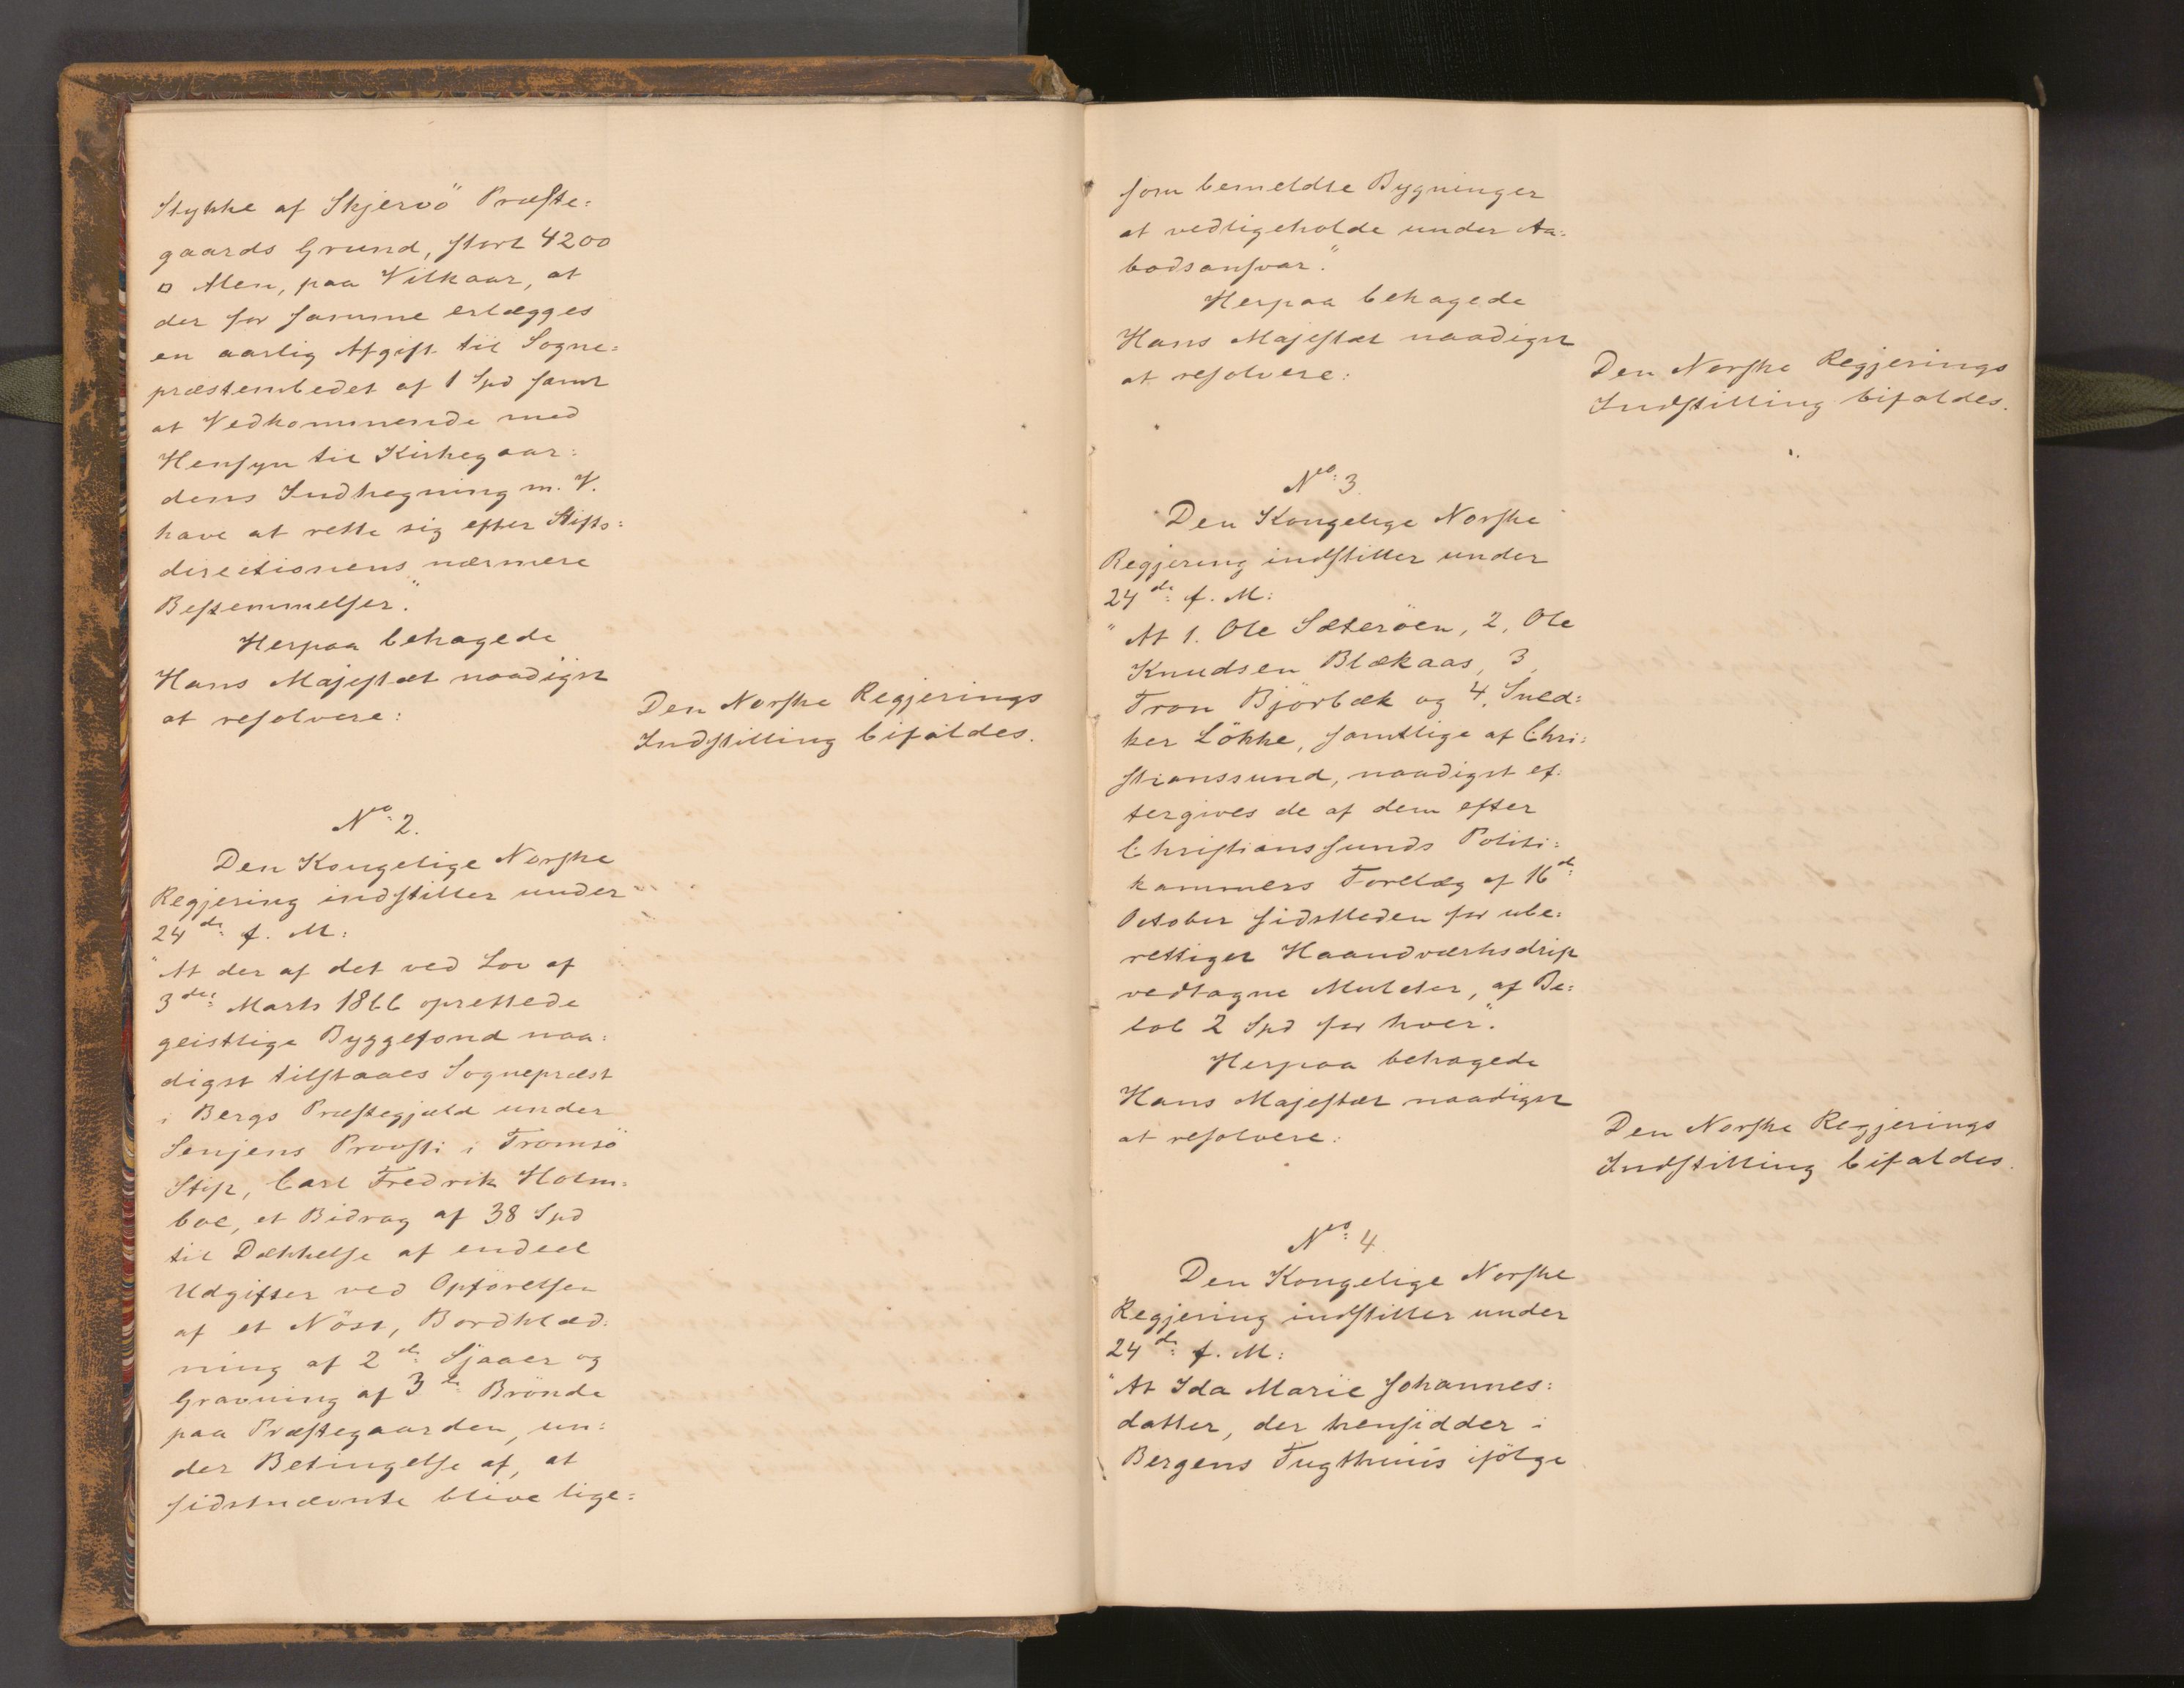 Stykke af Skjervö Præste:
gaards Grund, stort 4200
□ Alen, paa Vilkaar, at
der for samme erlægges
en aarlig Afgift til Sogne:
præstembedet af 1 Spd samt
at Vedkommende med
Hensyn til Kirkegaar:
dens Indhegning m. V.
have at rette sig efter Stifts:
directionens nærmere
Bestemmelser."
Herpaa behagede
Hans Majestæt naadigst
at resolvere:
Den Norske Regjerings
Indstilling bifaldes.
No: 2.
Den Kongelige Norske
Regjering indstiller under
24de: f. M:
"At der af det ved Lov af
3die: Marts 1866 oprettede
geistlige Byggefond naa:
digst tilstaaes Sognepræst
i Bergs Præstegjæld under
Senjens Provsti i Tromsö
Stift, Carl Fredrik Holm:
boe, et Bidrag af 38 Spd
til Dækkelse af endeel
Udgifter ved Opförelsen
af et Nöst, Bordklæd:
ning af 2de: Sjaaer og
Gravning af 3de: Brönde
paa Præstegaarden, un:
der Betingelse af, at
sidstnævnte blive lige:
som bemeldte Bygninger
at vedligeholde under Aa:
bodsansvar."
Herpaa behagede
Hans Majestæt naadigst
at resolvere:
Den Norske Regjerings
Indstilling bifaldes.
No: 3.
Den Kongelige Norske
Regjering indstiller under
24de: f. M:
"At 1. Ole Sæteröen, 2, Ole
Knudsen Blækaas, 3,
Tron Björbæk og 4, Sned:
ker Lökke, samtlige af Chri:
stianssund, naadigst ef:
tergives de af dem efter
Christianssunds Politi:
kammers Forelæg af 16de:
October sidstleden for ube:
rettiget Haandværksdrift
vedtagne Mulcter, af Be:
lob 2 Spd for hver".
Herpaa behagede
Hans Majestæt naadigst
at resolvere:
Den Norske Regjerings
Indstilling bifaldes.
No: 4.
Den Kongelige Norske
Regjering indstiller under
24de: f. M:
"At Ida Marie Johannes:
datter, der hensidder i
Bergens Tugthuus ifölge